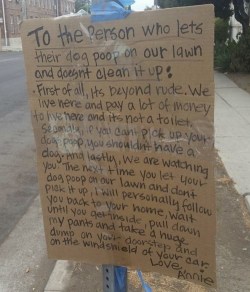 To the Person who lets
their dog poop on our lawn
and doesnt clean it up:
First of all, its beyond rude. We
live here and pay a lot of money
to live here and its not a toilet.
Secondly, if you cant pick up your
dog poop, you shouldnt have a
dog. And lastly, we are watching
you. The next time you let your
dog poop on our lawn and dont
pick it up, I will personally follow
you back to your home, wait
until you get inside, pull down
my pants and take a huge
dump on your doorstep and
on the windshield of your car.
Love,
Annie